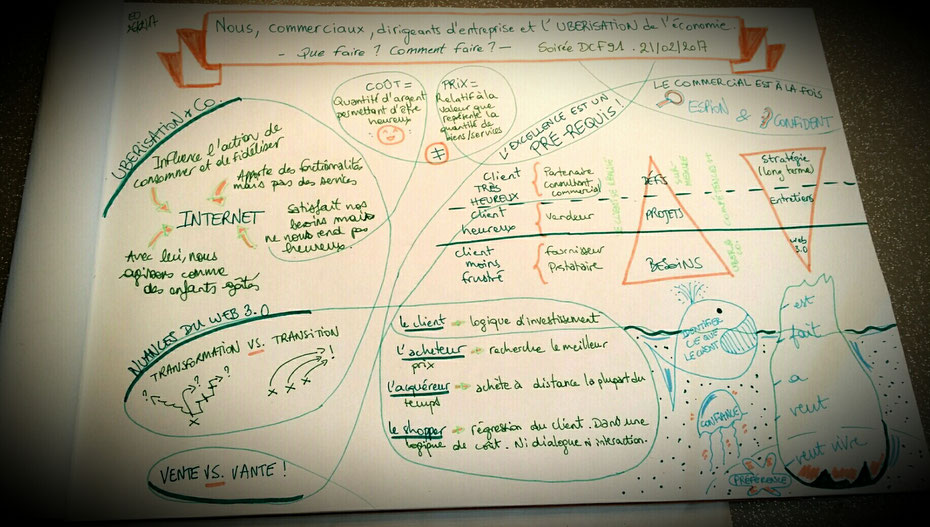 Nous, commerciaux, dirigeants d'entreprise et l'UBERISATION de l'économie.
- Que faire ? Comment faire ? - Soirée DCF91. 21/02/2017
UBERISATION & CO.
Influence l'action de
consommer et de fidéliser
Apporte des fonctionnalités
mais pas des services
INTERNET
satisfait nos
besoins mais
ne nous rend pas
heureux.
Avec lui, nous
agissons comme
des enfants gâtés
COÛT =
Quantité d'argent
permettant d'être
heureux
≠
PRIX =
Relatif à la
valeur que
représente la
quantité de
biens/services
L'EXCELLENCE EST UN
PRE-REQUIS !
LE COMMERCIAL EST À LA FOIS
ESPION & CONFIDENT
Client
TRÈS
HEUREUX
Partenaire
consultant
commercial
client
heureux
vendeur
client
moins
frustré
fournisseur
Prestataire
DÉFIS
PROJETS
BESOINS
Stratégie
(long terme)
entretiens
web
3.0
NUANCES DU WEB 3.0
TRANSFORMATION VS. TRANSITION
? ? ? !
VENTE VS. VANTE !
le client → logique d'investissement
l'acheteur → recherche le meilleur
prix
l'acquéreur → achète à distance la plupart du
temps
le shopper → régression du client. Dans une
logique de coût. Ni dialogue ni interaction.
IDENTIFIER
CE QUE
LE CLIENT
- est
- fait
- a
- veut
- veut vivre
CONFIANCE
PRÉFÉRENCE